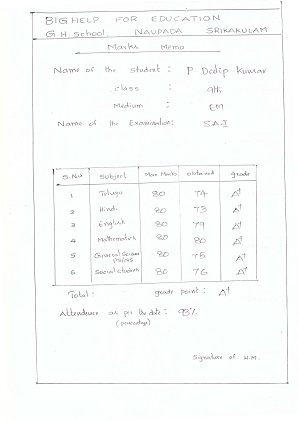 BIG HELP FOR EDUCATION
G H School, NAUPADA SRIKAKULAM
Marks Memo
Name of the student : P Dedip Kumar
class : 9th
Medium : EM
Name of the Examination: SA-I
S No Subject Max Marks obtained grade
1 Telugu 80 74 A+
2 Hindi 80 75 A+
3 English 80 79 A+
4 Mathematics 80 80 A+
5 General Science 80 75 A+
6 Social studies 80 76 A+
Total: grade point : A+
Attendence as per the date : 93%
Signature of H.M.